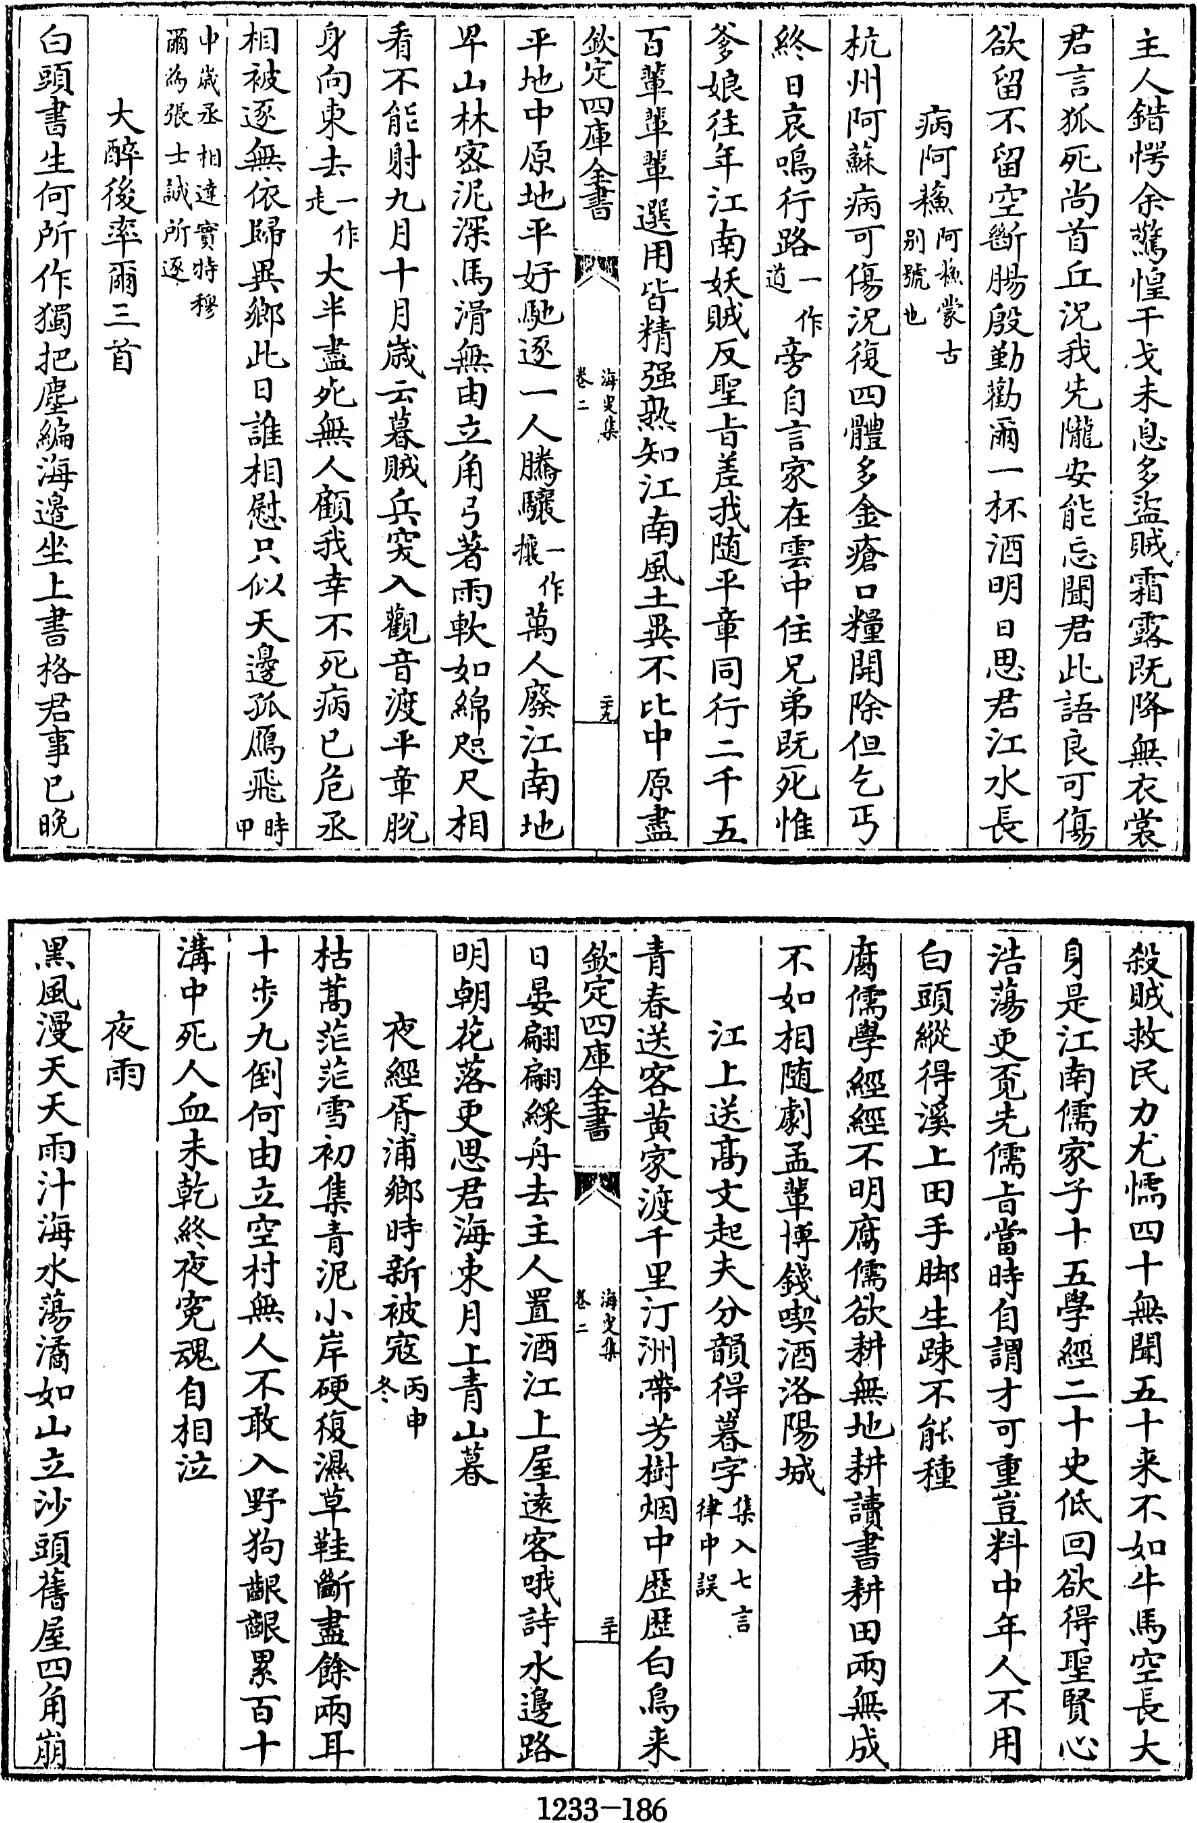 主人錯愕余驚惶干戈未息多盜賊霜露既降無衣裳
君言狐死尚首丘況我先隴安能忘聞君此語良可傷
欲留不留空斷腸殷勤勸爾一杯酒明日思君江水長
病阿穌阿穌蒙古别號也
杭州阿蘇病可傷況復四體多金瘡口糧開除但乞丐
終日哀鳴行路一作道旁自言家在雲中住兄弟既死惟
爹娘往年江南妖賊反聖旨差我随平章同行二千五
百輩輩輩選用皆精强熟知江南風土異不比中原盡
欽定四庫全書
海叟集
卷二
二十九
平地中原地平好馳逐一人騰驤一作攘萬人廢江南地
卑山林密泥深馬滑無由立角弓著雨軟如綿咫尺相
看不能射九月十月歲云暮賊兵突入觀音渡平章脫
身向東去一作走大半盡死無人顧我幸不死病已危丞
相被逐無依歸異鄉此日誰相慰只似天邊孤鴈飛時甲
申歲丞相達實特穆
爾為張士誠所逐
大醉後率爾三首
白頭書生何所作獨把塵編海邊坐上書格君事已晚
殺賊救民力尤懦四十無聞五十来不如牛馬空長大
身是江南儒家子十五學經二十史低回欲得聖賢心
浩蕩更覓先儒旨當時自謂才可重豈料中年人不用
白頭縱得溪上田手脚生踈不能種
腐儒學經經不明腐儒欲耕無地耕讀書耕田兩無成
不如相随劇孟輩博錢喫酒洛陽城
江上送高文起夫分韻得暮字集入七言律中誤
青春送客黄家渡千里汀洲帶芳樹烟中歴歴白鳥来
欽定四庫全書
海叟集
卷二
三十
日晏翩翩綵舟去主人置酒江上屋逺客哦詩水邊路
明朝花落更思君海東月上青山暮
夜經胥浦鄉時新被寇丙申冬
枯蒿茫茫雪初集青泥小岸硬復濕草鞋斷盡餘兩耳
十步九倒何由立空村無人不敢入野狗齦齦累百十
溝中死人血未乾終夜寃魂自相泣
夜雨
黒風漫天天雨汁海水蕩潏如山立沙頭舊屋四角崩
1233-186